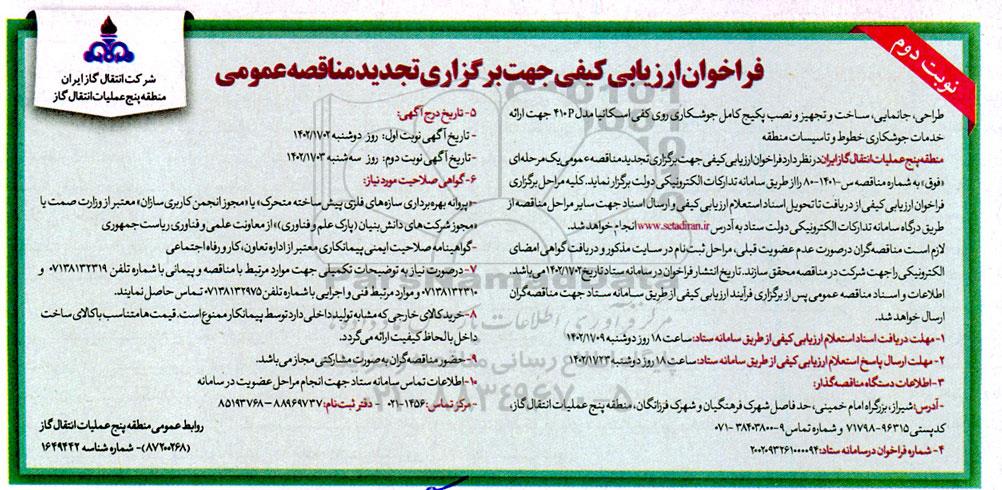 نوبت دوم
شرکت انتقال گاز ایران
منطقه پنج عملیات انتقال گاز
فراخوان ارزیابی کیفی جهت برگزاری تجدید مناقصه عمومی
طراحی، جانمایی، ساخت و تجهیز و نصب پکیج کامل جوشکاری روی کفی اسکانیا مدل ۴۱۰P جهت ارائه
خدمات جوشکاری خطوط و تاسیسات منطقه
منطقه پنج عملیات انتقال گاز ایران در نظر دارد فراخوان ارزیابی کیفی جهت برگزاری تجدید مناقصه عمومی یک مرحله ای
«فوق» به شماره مناقصه س-۱۴۰۱-۸۰ را از طریق سامانه تدارکات الکترونیکی دولت برگزار نماید. کلیه مراحل برگزاری
فراخوان ارزیابی کیفی از دریافت تا تحویل اسناد استعلام ارزیابی کیفی و ارسال اسناد جهت سایر مراحل مناقصه از
طریق درگاه سامانه تدارکات الکترونیکی دولت ستاد به آدرس www.setadiran.ir انجام خواهد شد.
لازم است مناقصه گران در صورت عدم عضویت قبلی، مراحل ثبت نام در سایت مذکور و دریافت گواهی امضای
الکترونیکی را جهت شرکت در مناقصه محقق سازند. تاریخ انتشار فراخوان در سامانه ستاد تاریخ ۱۴۰۲/۱۷۰۲ می باشد.
اطلاعات و اسناد مناقصه عمومی پس از برگزاری فرآیند ارزیابی کیفی از طریق سامانه ستاد جهت مناقصه گران
ارسال خواهد شد.
۱- مهلت دریافت اسناد استعلام ارزیابی کیفی از طریق سامانه ستاد: ساعت ۱۸ روز دوشنبه ۱۴۰۲/۱۷۰۹
۲- مهلت ارسال پاسخ استعلام ارزیابی کیفی از طریق سامانه ستاد: ساعت ۱۸ روز دوشنبه ۱۴۰۲/۱۷۲۳
۳- اطلاعات دستگاه مناقصه گذار:
- آدرس: شیراز، بزرگراه امام خمینی، حد فاصل شهرک فرهنگیان و شهرک فرزانگان، منطقه پنج عملیات انتقال گاز،
کدپستی ۹۶۳۱۵-۷۱۷۹۸ و شماره تماس ۹-۳۸۴۰۳۸۰۰-۰۷۱
۴- شماره فراخوان در سامانه ستاد: ۲۰۰۲۰۹۳۲۶۱۰۰۰۰۹۴
۵- تاریخ درج آگهی:
- تاریخ آگهی نوبت اول: روز دوشنبه ۱۴۰۲/۱۷۰۲
- تاریخ آگهی نوبت دوم: روز سه شنبه ۱۴۰۲/۱۷۰۳
۶- گواهی صلاحیت مورد نیاز:
- «پروانه بهره برداری سازه های فلزی پیش ساخته متحرک» یا «مجوز انجمن کاربری سازان» معتبر از وزارت صمت یا
«مجوز شرکت های دانش بنیان (پارک علم و فناوری)» از معاونت علمی و فناوری ریاست جمهوری
- گواهینامه صلاحیت ایمنی پیمانکاری معتبر از اداره تعاون، کار و رفاه اجتماعی
۷- در صورت نیاز به توضیحات تکمیلی جهت موارد مرتبط با مناقصه و پیمانی با شماره تلفن ۰۷۱۳۸۱۳۲۳۱۹ و
۰۷۱۳۸۱۳۲۳۱۰ و موارد مرتبط فنی و اجرایی با شماره تلفن ۰۷۱۳۸۱۳۲۹۷۵ تماس حاصل نمایند.
۸- خرید کالای خارجی که مشابه تولید داخلی دارد توسط پیمانکار ممنوع است. قیمت ها متناسب با کالای ساخت
داخل با لحاظ کیفیت ارائه می گردد.
۹- حضور مناقصه گران به صورت مشارکتی مجاز می باشد.
۱۰- اطلاعات تماس سامانه ستاد جهت انجام مراحل عضویت در سامانه
- مرکز تماس: ۱۴۵۶-۰۲۱ - دفتر ثبت نام: ۸۸۹۶۹۷۳۷ – ۸۵۱۹۳۷۶۸
روابط عمومی منطقه پنج عملیات انتقال گاز
(۸۷۲۰۰۲۶۸)- شماره شناسه ۱۶۴۹۴۴۲
ParsNamadData